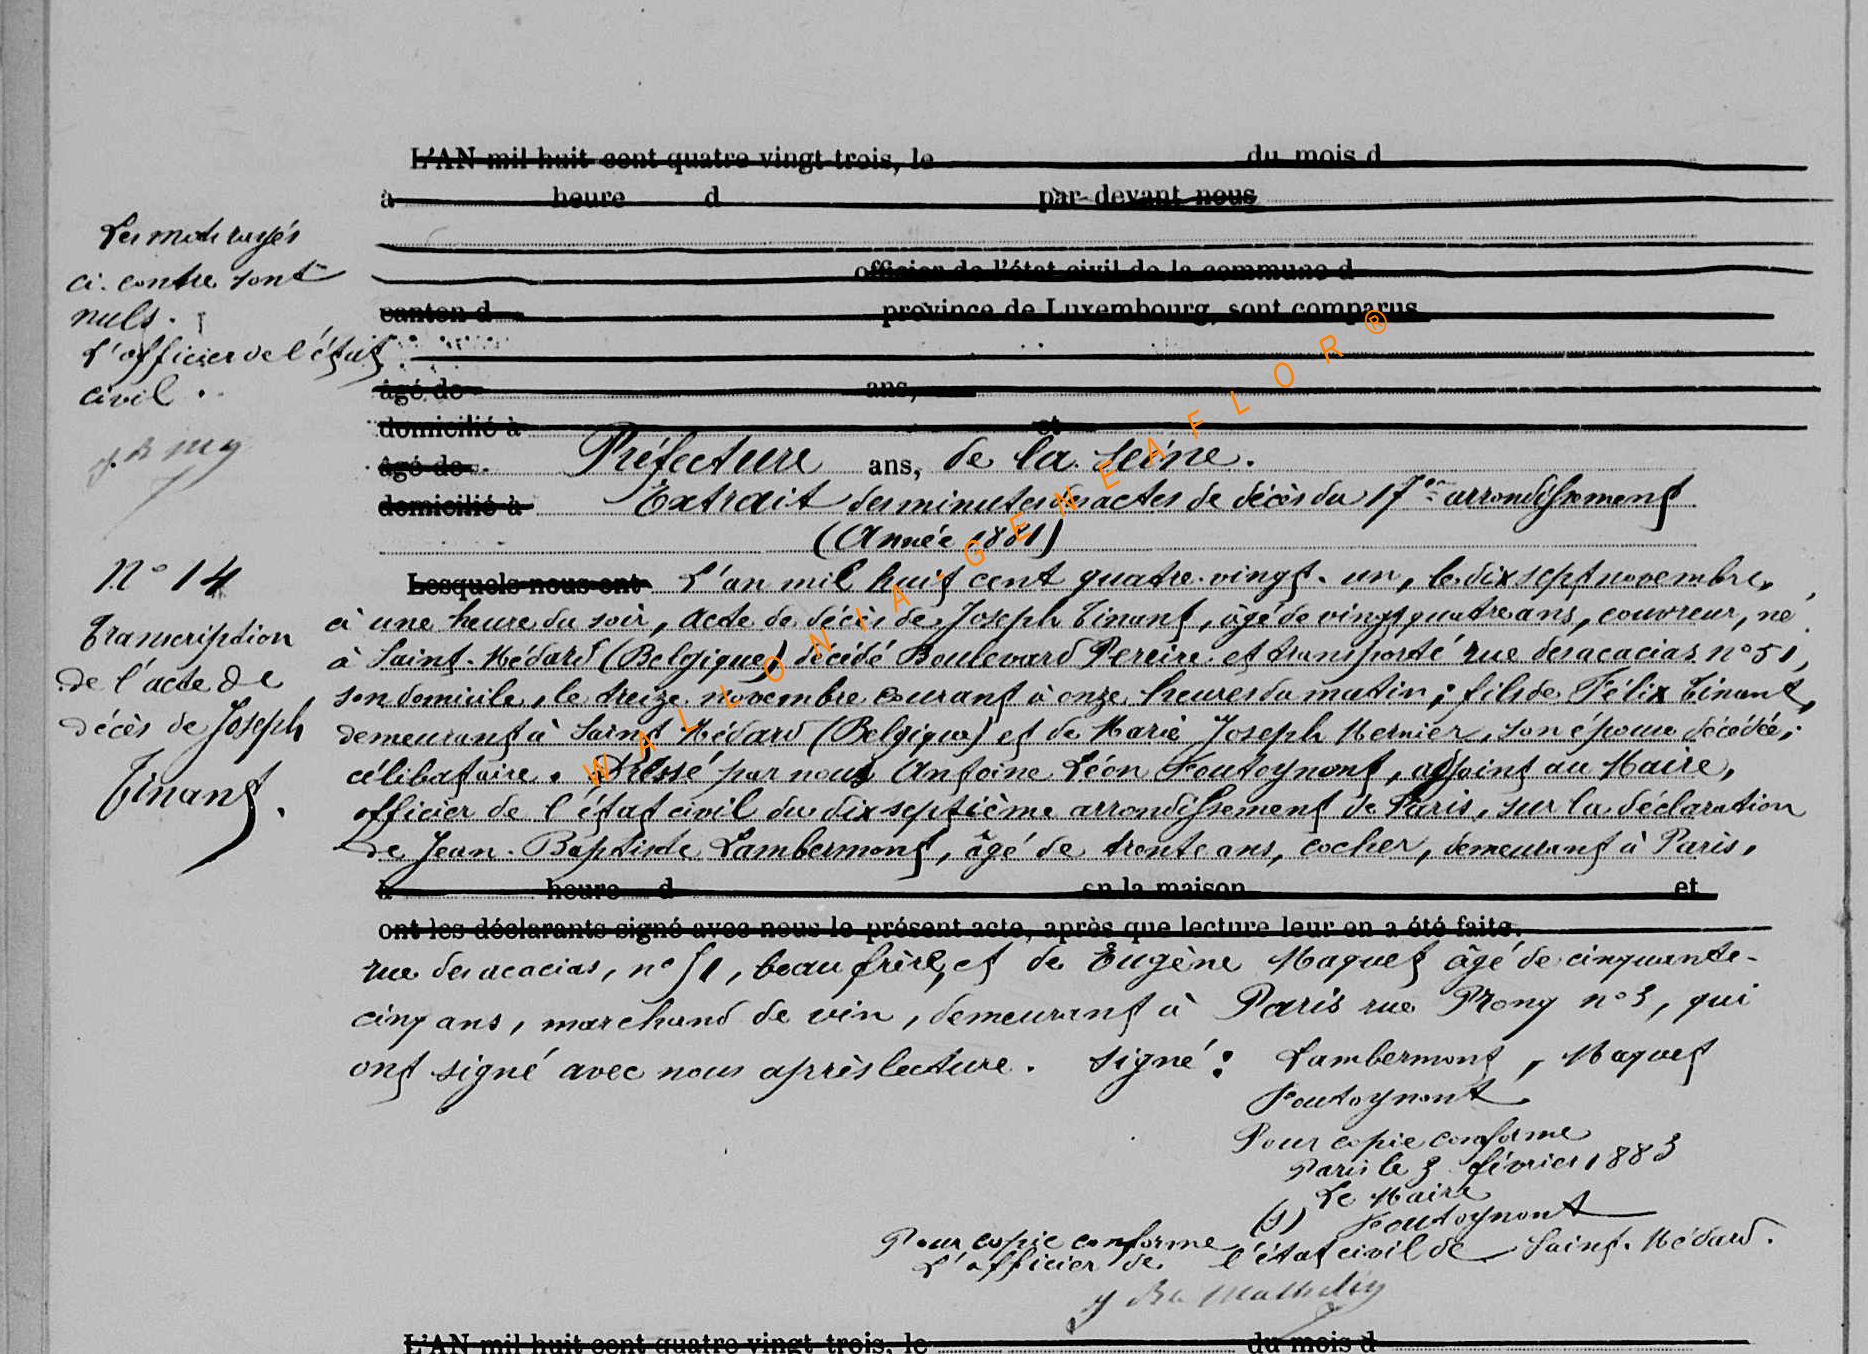 L'AN mil huit cent quatre vingt trois, le du mois d
à heure d par-devant nous
officier de l'état civil de la commune d
canton d province de Luxembourg, sont comparus
âgé de ans,
domicilié à et
âgé de ans,
domicilié à
Les mots rayés
ci-contre sont
nuls.
L'officier de l'état
civil.
Préfecture de la Seine.
Extrait des minutes des actes de décès du 17e arrondissement
(Année 1881)
N° 14
Transcription
de l'acte de
décès de Joseph
Tinant.
Lesquels nous ont L'an mil huit cent quatre-vingt-un, le dix sept novembre,
à une heure du soir, acte de décès de Joseph Tinant, âgé de vingt quatre ans, couvreur, né
à Saint-Médard (Belgique) décédé Boulevard Pereire et transporté rue des acacias n° 51,
son domicile, le treize novembre courant à onze heures du matin; fils de Félix Tinant,
demeurant à Saint Médard (Belgique) et de Marie Joseph Mernier, son épouse décédée;
célibataire. Dressé par nous Antoine Léon Foutoynont, adjoint au Maire,
officier de l'état civil du dix septième arrondissement de Paris, sur la déclaration
de Jean-Baptiste Lambermont, âgé de trente ans, cocher, demeurant à Paris,
à heure d en la maison et
ont les déclarants signé avec nous le présent acte, après que lecture leur en a été faite.
rue des acacias, n° 51, beau frère, et de Eugène Maquet âgé de cinquante-
cinq ans, marchand de vin, demeurant à Paris rue Prony n° 3, qui
ont signé avec nous après lecture. Signé: Lambermont, Maquet
Foutoynont
Pour copie conforme
Paris le 3 février 1883
Le Maire
(s) Foutoynont
Pour copie conforme
L'officier de l'état civil de Saint-Médard.
WALLONIA-GENEAFLOR®
L'AN mil huit cent quatre vingt trois, le du mois d